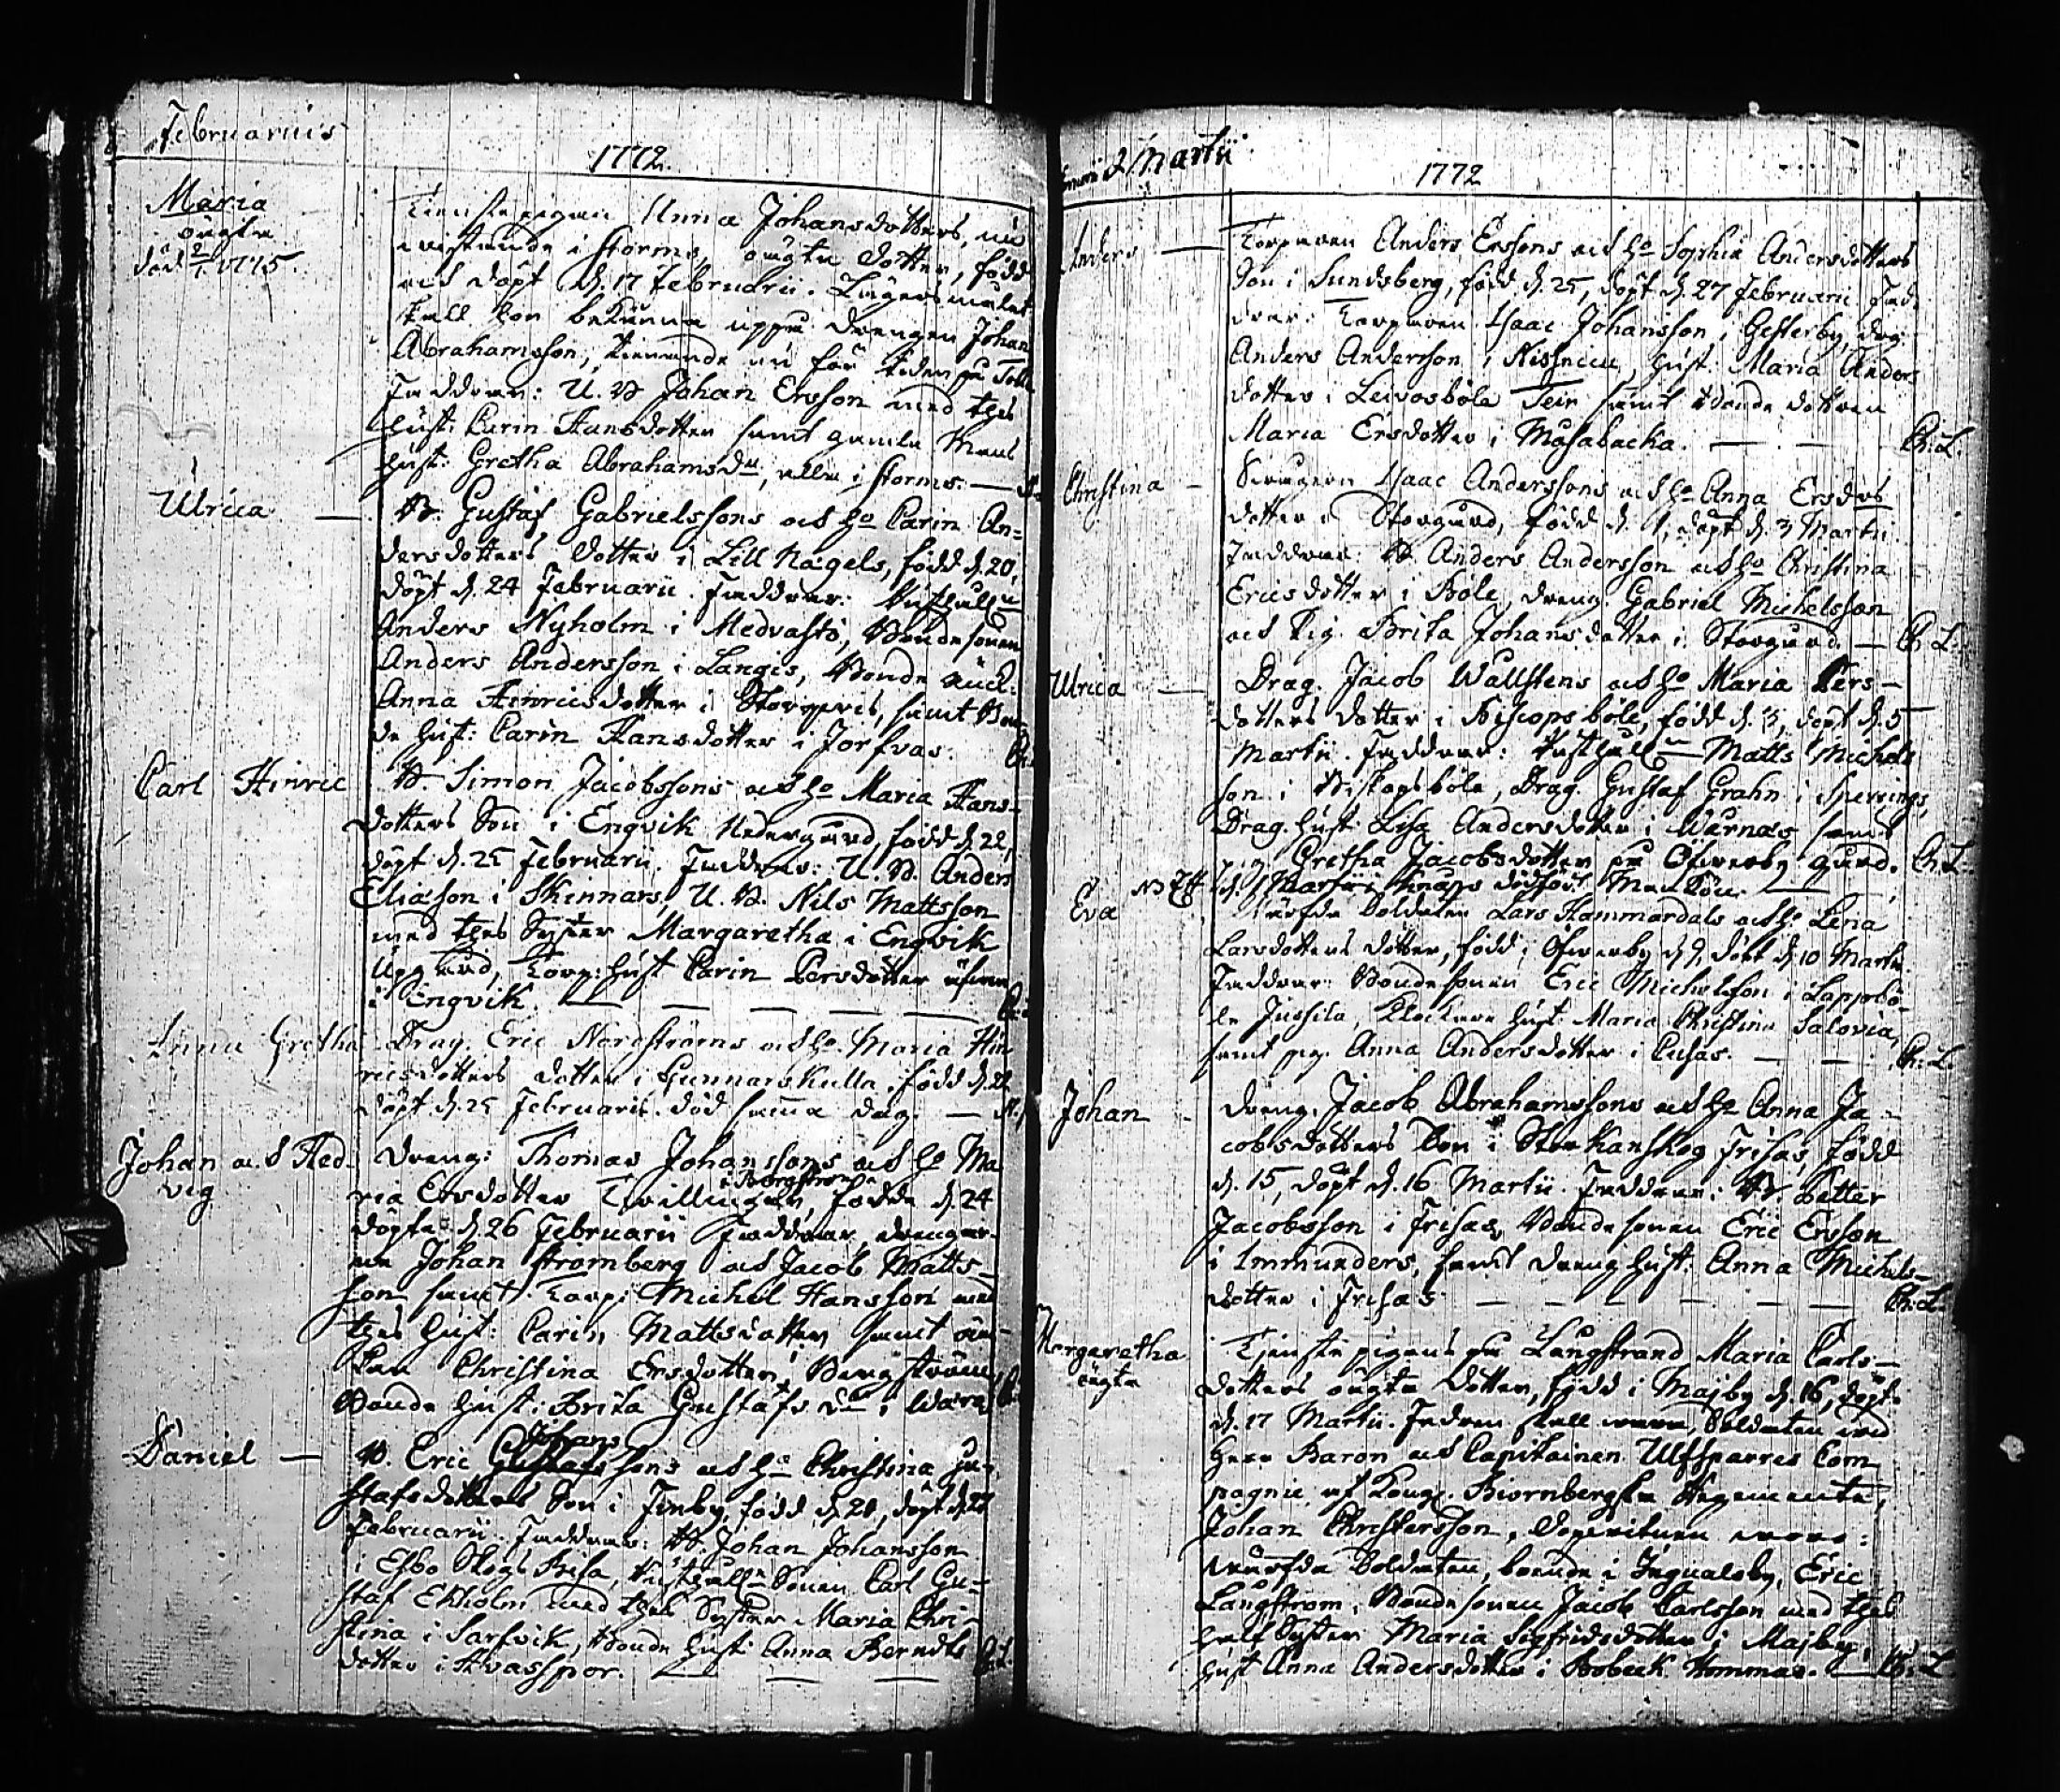 Februarius
1772.
Maria
oägta
död 2/1 1775.
Tienste pigan Anna Johansdotters, nu
vistande i Storms, oägta dotter, född
och döpt d. 17 Februarii. Lägersmålet
skall hon bekänna uppå drengen Johan
Abrahamsson, tienande nu för tiden på
Faddrar: U. B. Johan Ersson med thes
hust: Carin Hansdotter samt gamla
hust: Gretha Abrahamsdr, alla i Storms. —
Ulrica —
B. Gustaf Gabrielssons och ho Carin An=
dersdotters dotter i Lill Nagels, född d. 20,
döpt d. 24 Februarii. Faddrar:
Anders Nyholm i Medvasto, Bondesonen
Anders Andersson i Langis, Bonde änck:
Anna Hinricsdotter i Storgers, samt Bon
de hust: Carin Hansdotter i Jorfvas.
Carl Hinric
B. Simon Jacobssons och ho Maria Hans-
dotters Son i Engvik Nedergård, född d. 22,
döpt d. 25 Februarii. Faddrar: U. B. Anders
Eliason i Skinnars, U. B. Nils Mattsson
med thes Syster Margaretha i Engvik
Uppgård, Torp: hust Carin Persdotter
i Engvik. — — — — —
Anna Gretha
Drag. Eric Nordströms och ho Maria Hin
ricsdotters dotter i Gunnarskulla, född d. 22
döpt d. 25 Februarii. död samma dag. —
Johan och Hed-
vig
Dreng: Thomas Johanssons och ho Ma
i Bergström
ria Ersdotter Tvillingar, födde d. 24
döpte d. 26 Februarii Faddrar, drengar
ne Johan Strömberg och Jacob Matts-
son samt Torp: Michel Hansson med
thes hust: Carin Mattsdotter, samt
Christina Ersdotter i Bergström,
Bonde hust: Brita Gustafs dr i
Daniel —
Johans
B. Eric Gustafssons och ho Christina Gu-
stafsdotters Son i Finby, född d. 20, döpt d. 27
Februarii. Faddrar: B. Johan Johansson
i Esbo Skogs Frisa, Sonen Carl Gu=
staf Ekholm med thes Syster Maria Chri-
stina i Sarfvik, Bonde hust: Anna Berndts
dotter i Kvasspor. — — —
& Martii
1772
Anders —
Torparen Anders Erssons och ho Sophia Andersdotters
Son i Sundsberg, född d. 25, döpt d. 27 Februarii Fad
drar: Torparen Isaac Johansson i Gesterby, drg
Anders Andersson i Nissnicu, hust: Maria Anders
dotter i Leivosböle Teir samt Bonde dottren
Maria Ersdotter i Masabacka. — — Ch: L.
Christina -
Isaac Anderssons och ho Anna Ersdrs
dotter i Storgård, född d. 1, döpt d. 3 Martii
Faddrar: B. Anders Andersson och ho Christina
Ericsdotter i Böle, dreng. Gabriel Michelsson
och Pig. Brita Johansdotter i Storgård. — Ch L.
Ulrica —
Drag. Jacob Wallstens och ho Maria Pers-
dotters dotter i Biscopsböle, född d. 3, döpt d. 5
Martii. Faddrar: Matts Michels
son i Biskopsböle, Drag. Gustaf Grahn i Sperrings,
Drag. hust: Lisa Andersdotter i Warnas samt
pig. Gretha Jacobsdotter på Öfwerby gård. Ch: L.
d. 1 Martii Knapps dödfödt
Eva
Soldaten Lars Hammardals och ho Lena
Larsdotters dotter, född i Öfwerby d. 9, döpt d. 10 Martii
Faddrar: Bondesonen Eric Michelsson i Lappbö-
le Jussila, Klockare hust: Maria Christina Salovia,
samt pig. Anna Andersdotter i — — Ch: L.
Johan -
Dreng. Jacob Abrahamssons och ho Anna Ja-
cobsdotters Son i Storkanskog Frisas, född
d. 15, döpt d. 16 Martii. Faddrar: B. Petter
Jacobsson i Frisas, Bondesonen Eric Ersson
i Immunders, samt dreng hust: Anna Michels-
dotter i Frisas — — — — — — Ch: L.
Margaretha
oägta
Tjenste pigans på Långstrand Maria Carls-
dotters oägta dotter, född i Majby d. 16, döpt
d. 17 Martii. Fadren skall vara Soldaten vid
Herr Baron och Capitainen Ulfsparres Com
pagnie af Kongl. Biörnbergska Regemente,
Johan Christersson. Dopvitnen voro:
Soldaten, boende i Ingvalsby, Eric
Långström, Bondesonen Jacob Carlsson med thes
half Syster Maria Sigfridsdotter i Majby,
hust Anna Andersdotter i Bobeck Hommas. — Ch: L.